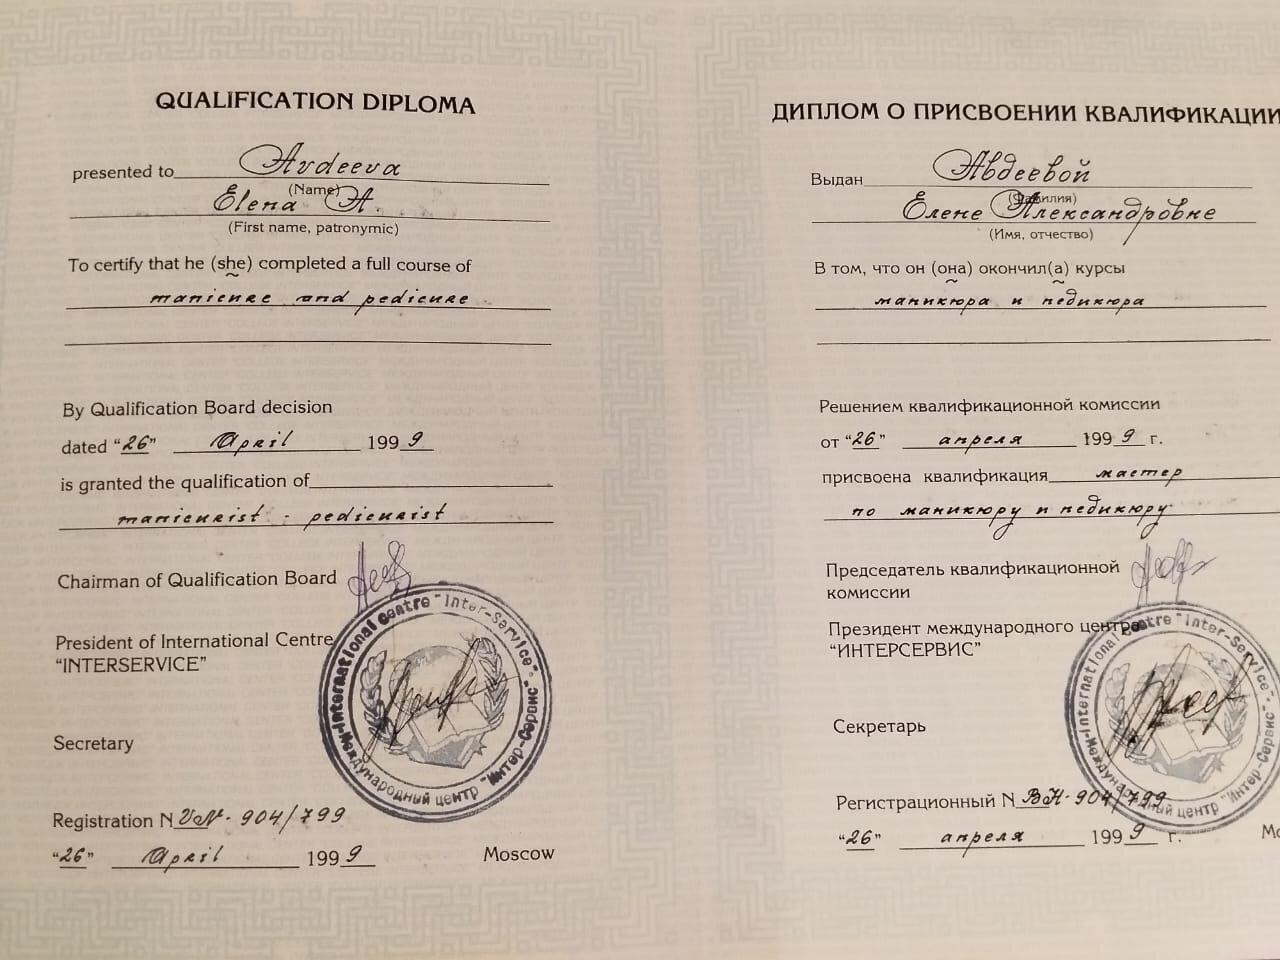 QUALIFICATION DIPLOMA
presented to Avdeeva
(Name)
Elena A.
(First name, patronymic)
To certify that he (she) completed a full course of
manicure and pedicure
By Qualification Board decision
dated “26” April 1999
is granted the qualification of
manicurist - pedicurist
Chairman of Qualification Board
President of International Centre
“INTERSERVICE”
Secretary
International Centre "Inter-Service"
Международный центр "Интер-Сервис"
Registration N VN - 904/799
“26” April 1999 Moscow
ДИПЛОМ О ПРИСВОЕНИИ КВАЛИФИКАЦИИ
Выдан Авдеевой
(Фамилия)
Елене Александровне
(Имя, отчество)
В том, что он (она) окончил(а) курсы
маникюра и педикюра
Решением квалификационной комиссии
от “26” апреля 1999 г.
присвоена квалификация мастер
по маникюру и педикюру
Председатель квалификационной
комиссии
Президент международного центра
“ИНТЕРСЕРВИС”
Секретарь
International Centre "Inter-Service"
Международный центр "Интер-Сервис"
Регистрационный N ВН - 904/799
“26” апреля 1999 г.